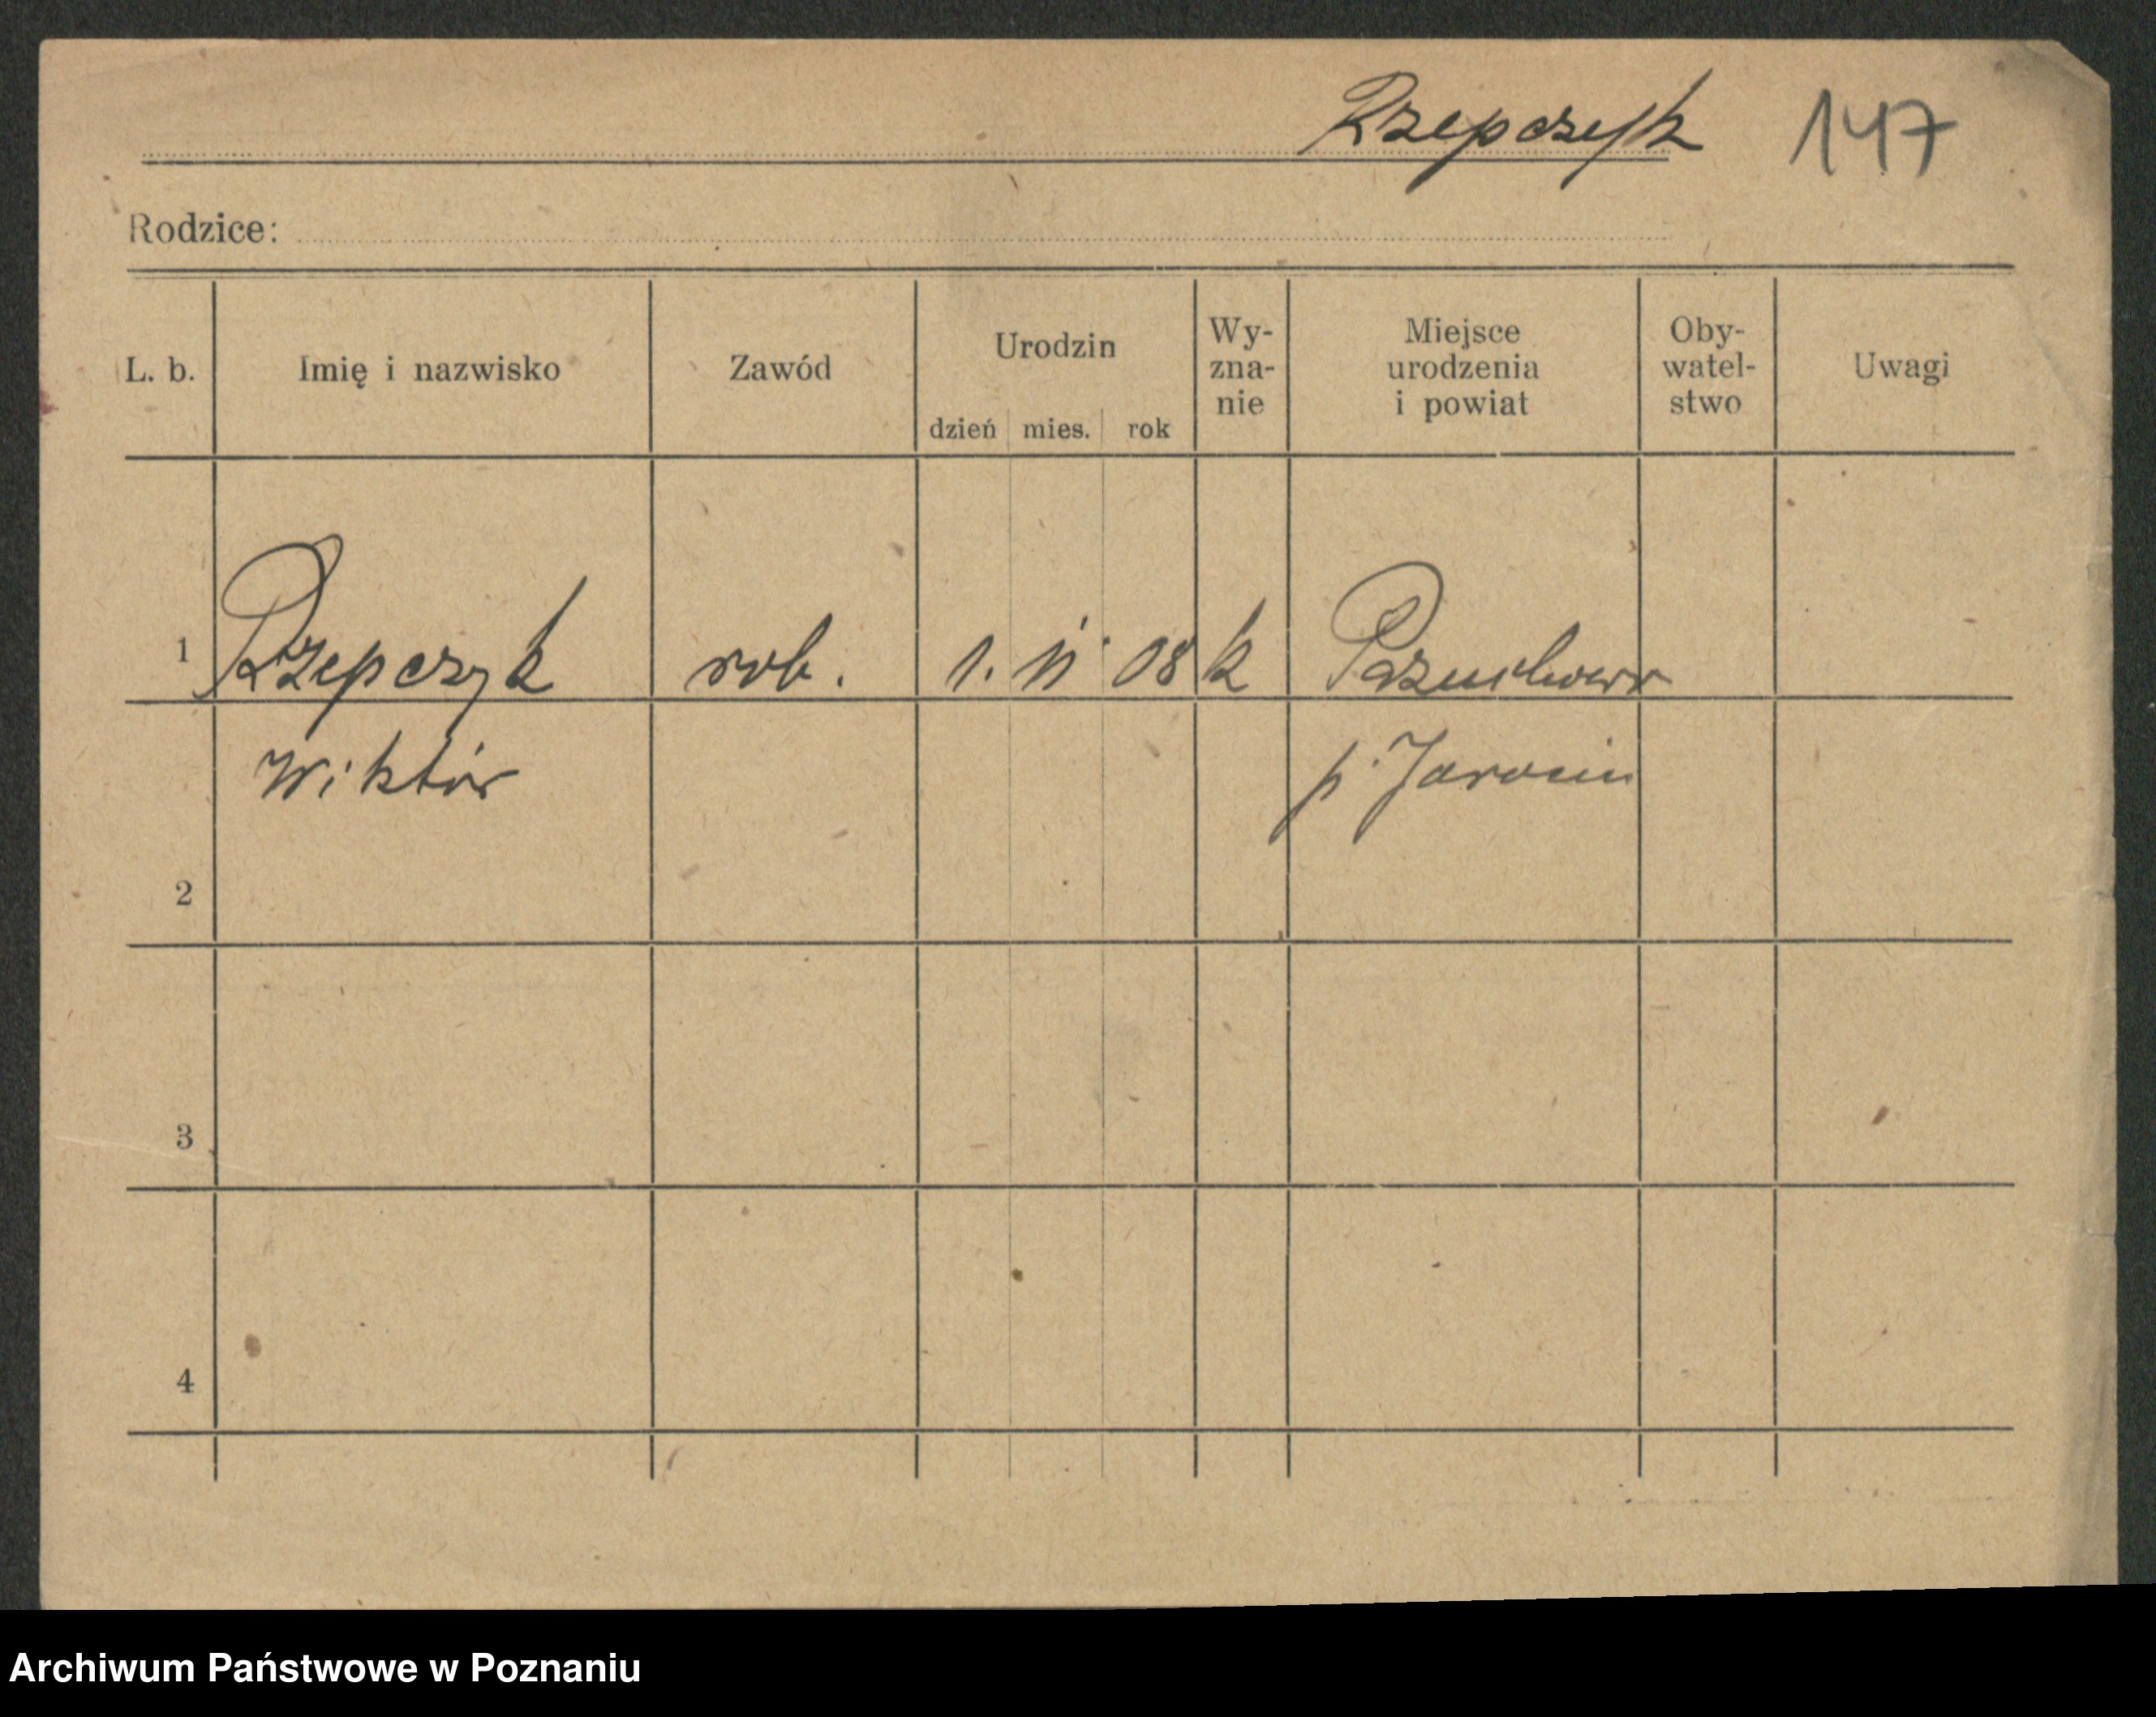 Rzepczyk 147
Rodzice:
L. b. Imię i nazwisko Zawód Urodzin dzień mies. rok Wy-zna-nie Miejsce urodzenia i powiat Oby-watel-stwo Uwagi
1 Rzepczyk rob. 1. 08 k
Wiktór p. Jarocin
2
3
4
Archiwum Państwowe w Poznaniu